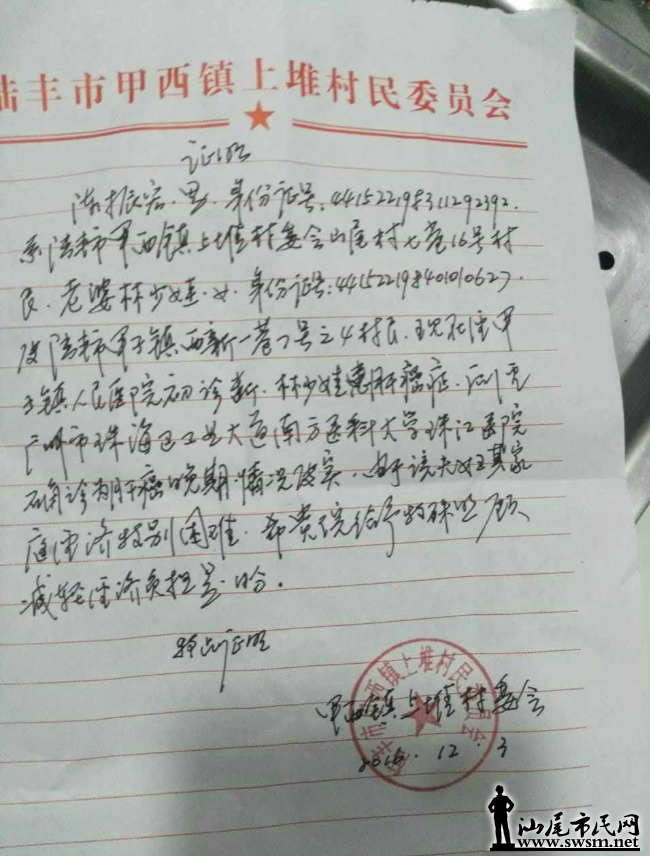 陆丰市甲西镇上堆村民委员会
证明
陈振宏.男.身份证号:441522198311292392.
系陆丰市甲西镇上堆村委会山尾村七巷16号村
民.老婆林少娃.女.身份证号:441522198401010627.
陆丰市甲子镇西新一巷7号之4村民.现在甲
子镇人民医院初诊断.林少娃患肝癌症.
广州市珠海区工业大道南方医科大学珠江医院
确诊为肝癌晚期.情况属实.由于该夫妇其家
庭经济特别困难.希贵院给予特殊照顾
减轻经济负担是盼.
特此证明
甲西镇上堆村委会
2016.12.3
陆丰市甲西镇上堆村民委员会
汕尾市民网
www.swsm.net